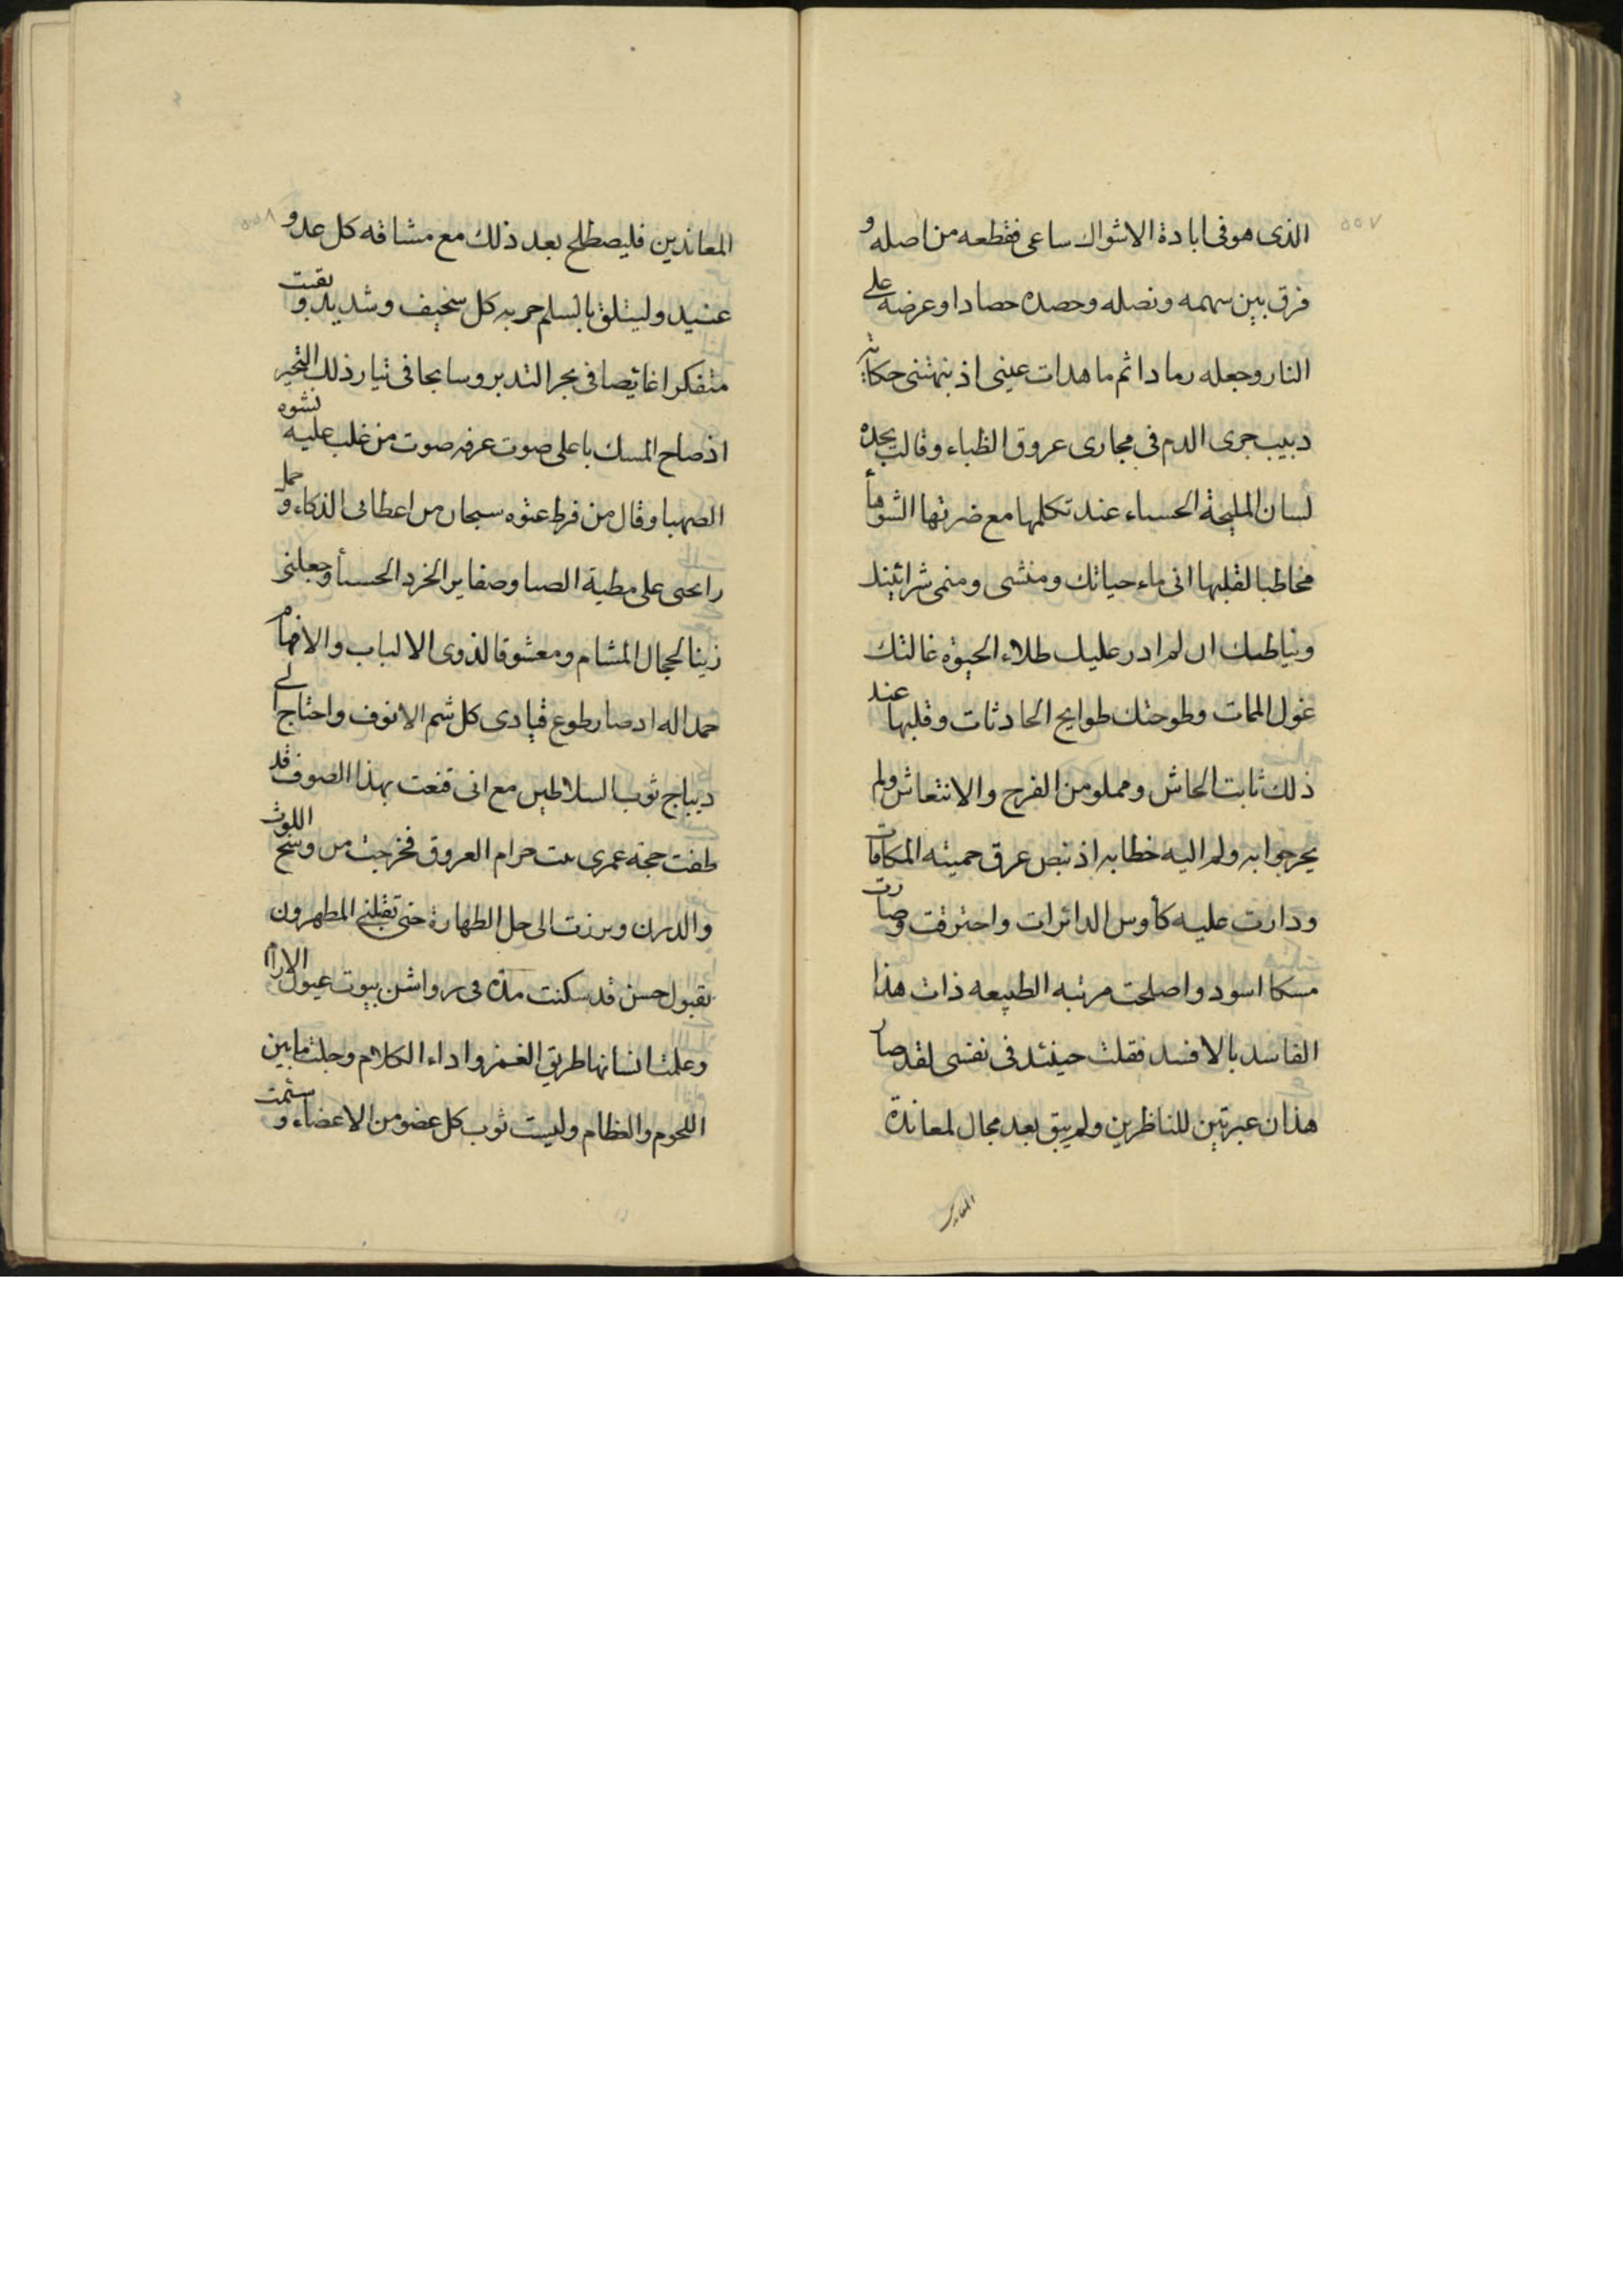 ٥٥٧
الذى هو فى ابادة الاشواك ساعى فقطعه من اصله و
فرق بين سهمه ونصله وحصده حصادا وعرضه على
النار وجعله رمادا ثم ما هدات عينى اذ نبهتنى حكاية
دبيب جرى الدم فى مجارى عروق الظباء وقالب بحده
لسان المليحة الحسناء عند تكلمها مع ضرتها الشوهأ
مخاطبا لقلبها انى ماء حياتك ومنشى ومنمى
ان لم ادر عليك طلاء الحيوة غالتك
غول الممات وطوحتك طوايح الحادثات وقلبها عند
ذلك ثابت الجاش ومملو من الفرح والانتعاش ولم
يحر جوابه ولم اليه خطابه اذ نبض عرق حميته المكافات
ودارت عليه كأوس الدائرات واحترقت وصارت
مسكا اسود واصلحت مرتبه الطبيعه ذات هذا
الفاسد بالافسد فقلت حينئذ فى نفسى لقد صار
هذان عبرتين للناظرين ولم يبق بعد مجال لمعاندة
المعاندين
٥٥٨
المعاندين فليصطلح بعد ذلك مع مشاقه كل عدو
عنيد وليتلق بالسلم حربه كل سخيف وشديد وبقيت
متفكرا غائصا فى بحر التدبر وسابحا فى تيار ذلك التحير
اذ صاح المسك باعلى صوت عرفه صوت من غلب عليه نشوه
الصهبا وقال من فرط عتوه سبحان من اعطانى الذكاء و حمل
رايحتى على مطية الصبا وضفاير الخرد الحسنأ وجعلنى
زينا لحجال المشام ومعشوقا لذوى الالباب والافهام
حمدا له اذ صار طوع قيادى كل شم الانوف واحتاج الى
ديباج ثوب السلاطين مع انى قنعت بهذا الصوف قد
طفت حجة عمرى بيت حرام العروق فخرجت من وسخ اللوث
والدرن وبرزت الى حل الطهارة حتى تقبلنى المطهرون
بقبول حسن قد سكنت مدة فى رواشن بيوت عيون الارآم
وعلمت انسانها طريق الغمز واداء الكلام وجلت ما بين
اللحوم والعظام ولبست ثوب كل عضو من الاعضاء و سئمت